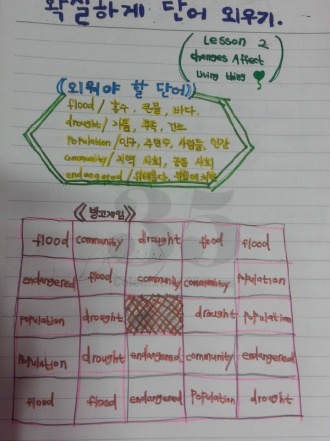 확실하게 단어 외우기.
Lesson 2
changes Affect
Living thing
《외워야 할 단어》
flood / 홍수, 큰물, 바다,
drought / 가뭄, 부족,
Population / 인구, 주민수, 사람들,
community / 지역 사회, 공동 사회
endangered /
《빙고게임》
flood community drought flood flood
endangered flood community community Population
Population drought drought Population
Population drought endangered community endangered
flood flood endangered Population drought